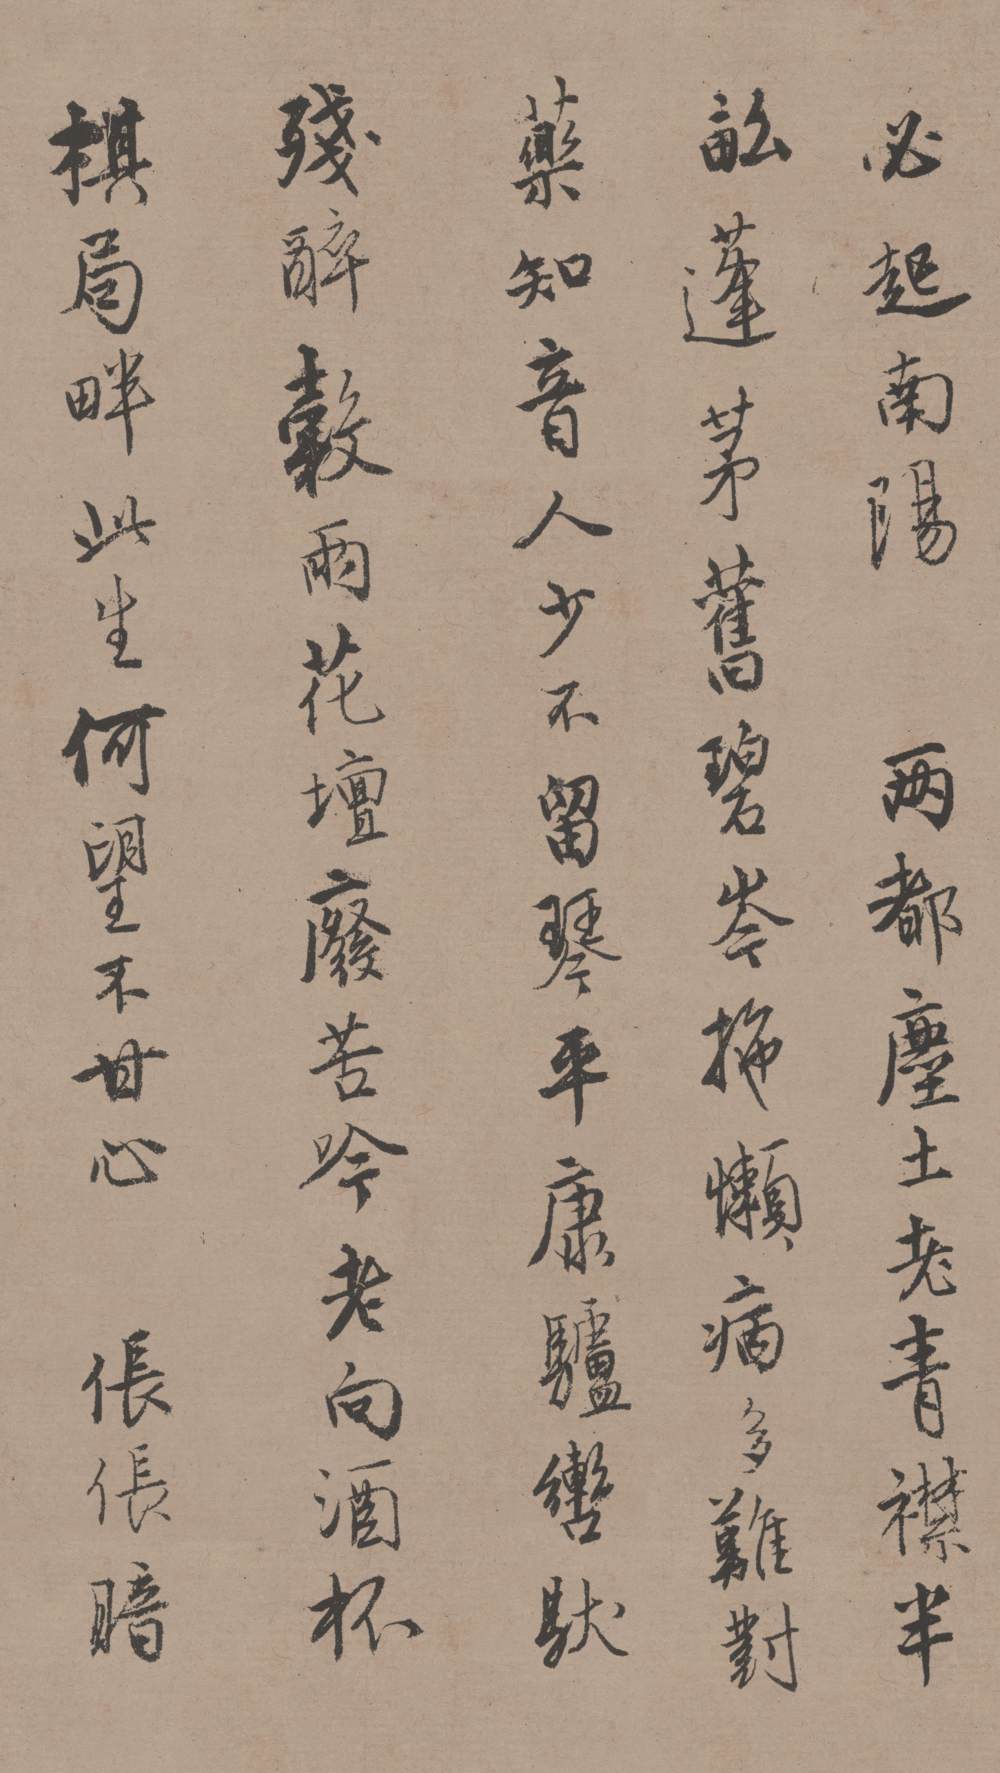 必起南陽 两都塵土老青襟半
畝蓬茅舊碧岑拖懶病多難對
藥知音人少不留琴平康驢轡馱
殘醉穀雨花壇廢苦吟老向酒杯
棋局畔此生何望不甘心 倀倀暗